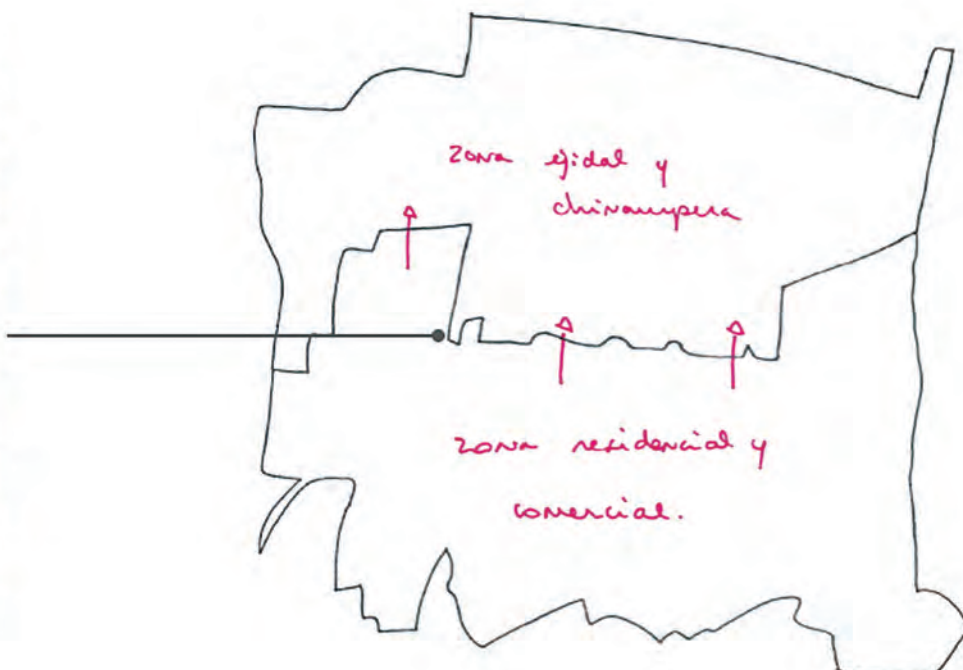 zona ejidal y
chinampera
zona residencial y
comercial.